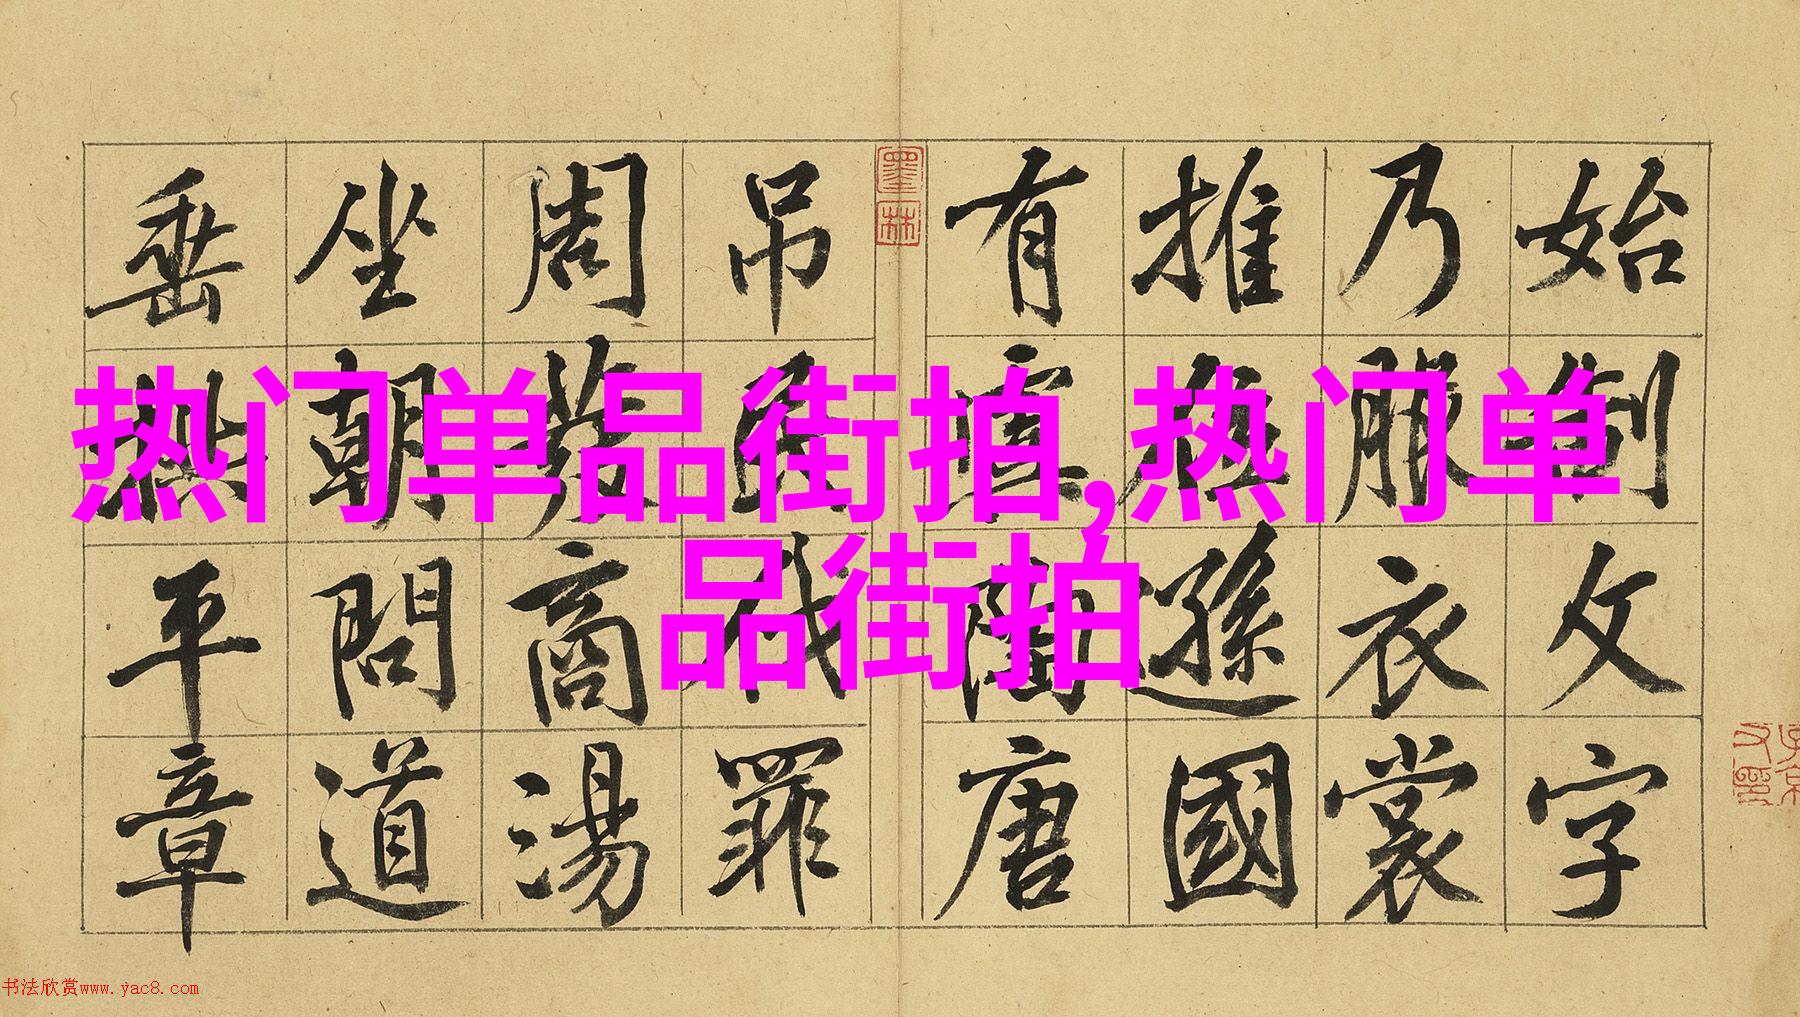 热门单品街拍,热门单
品街拍
始制文字
乃服衣裳
推位遜國
有虞陶唐
墨林
吊民伐罪
周發商湯
坐朝問道
垂拱平章
书法欣赏www.yac8.com